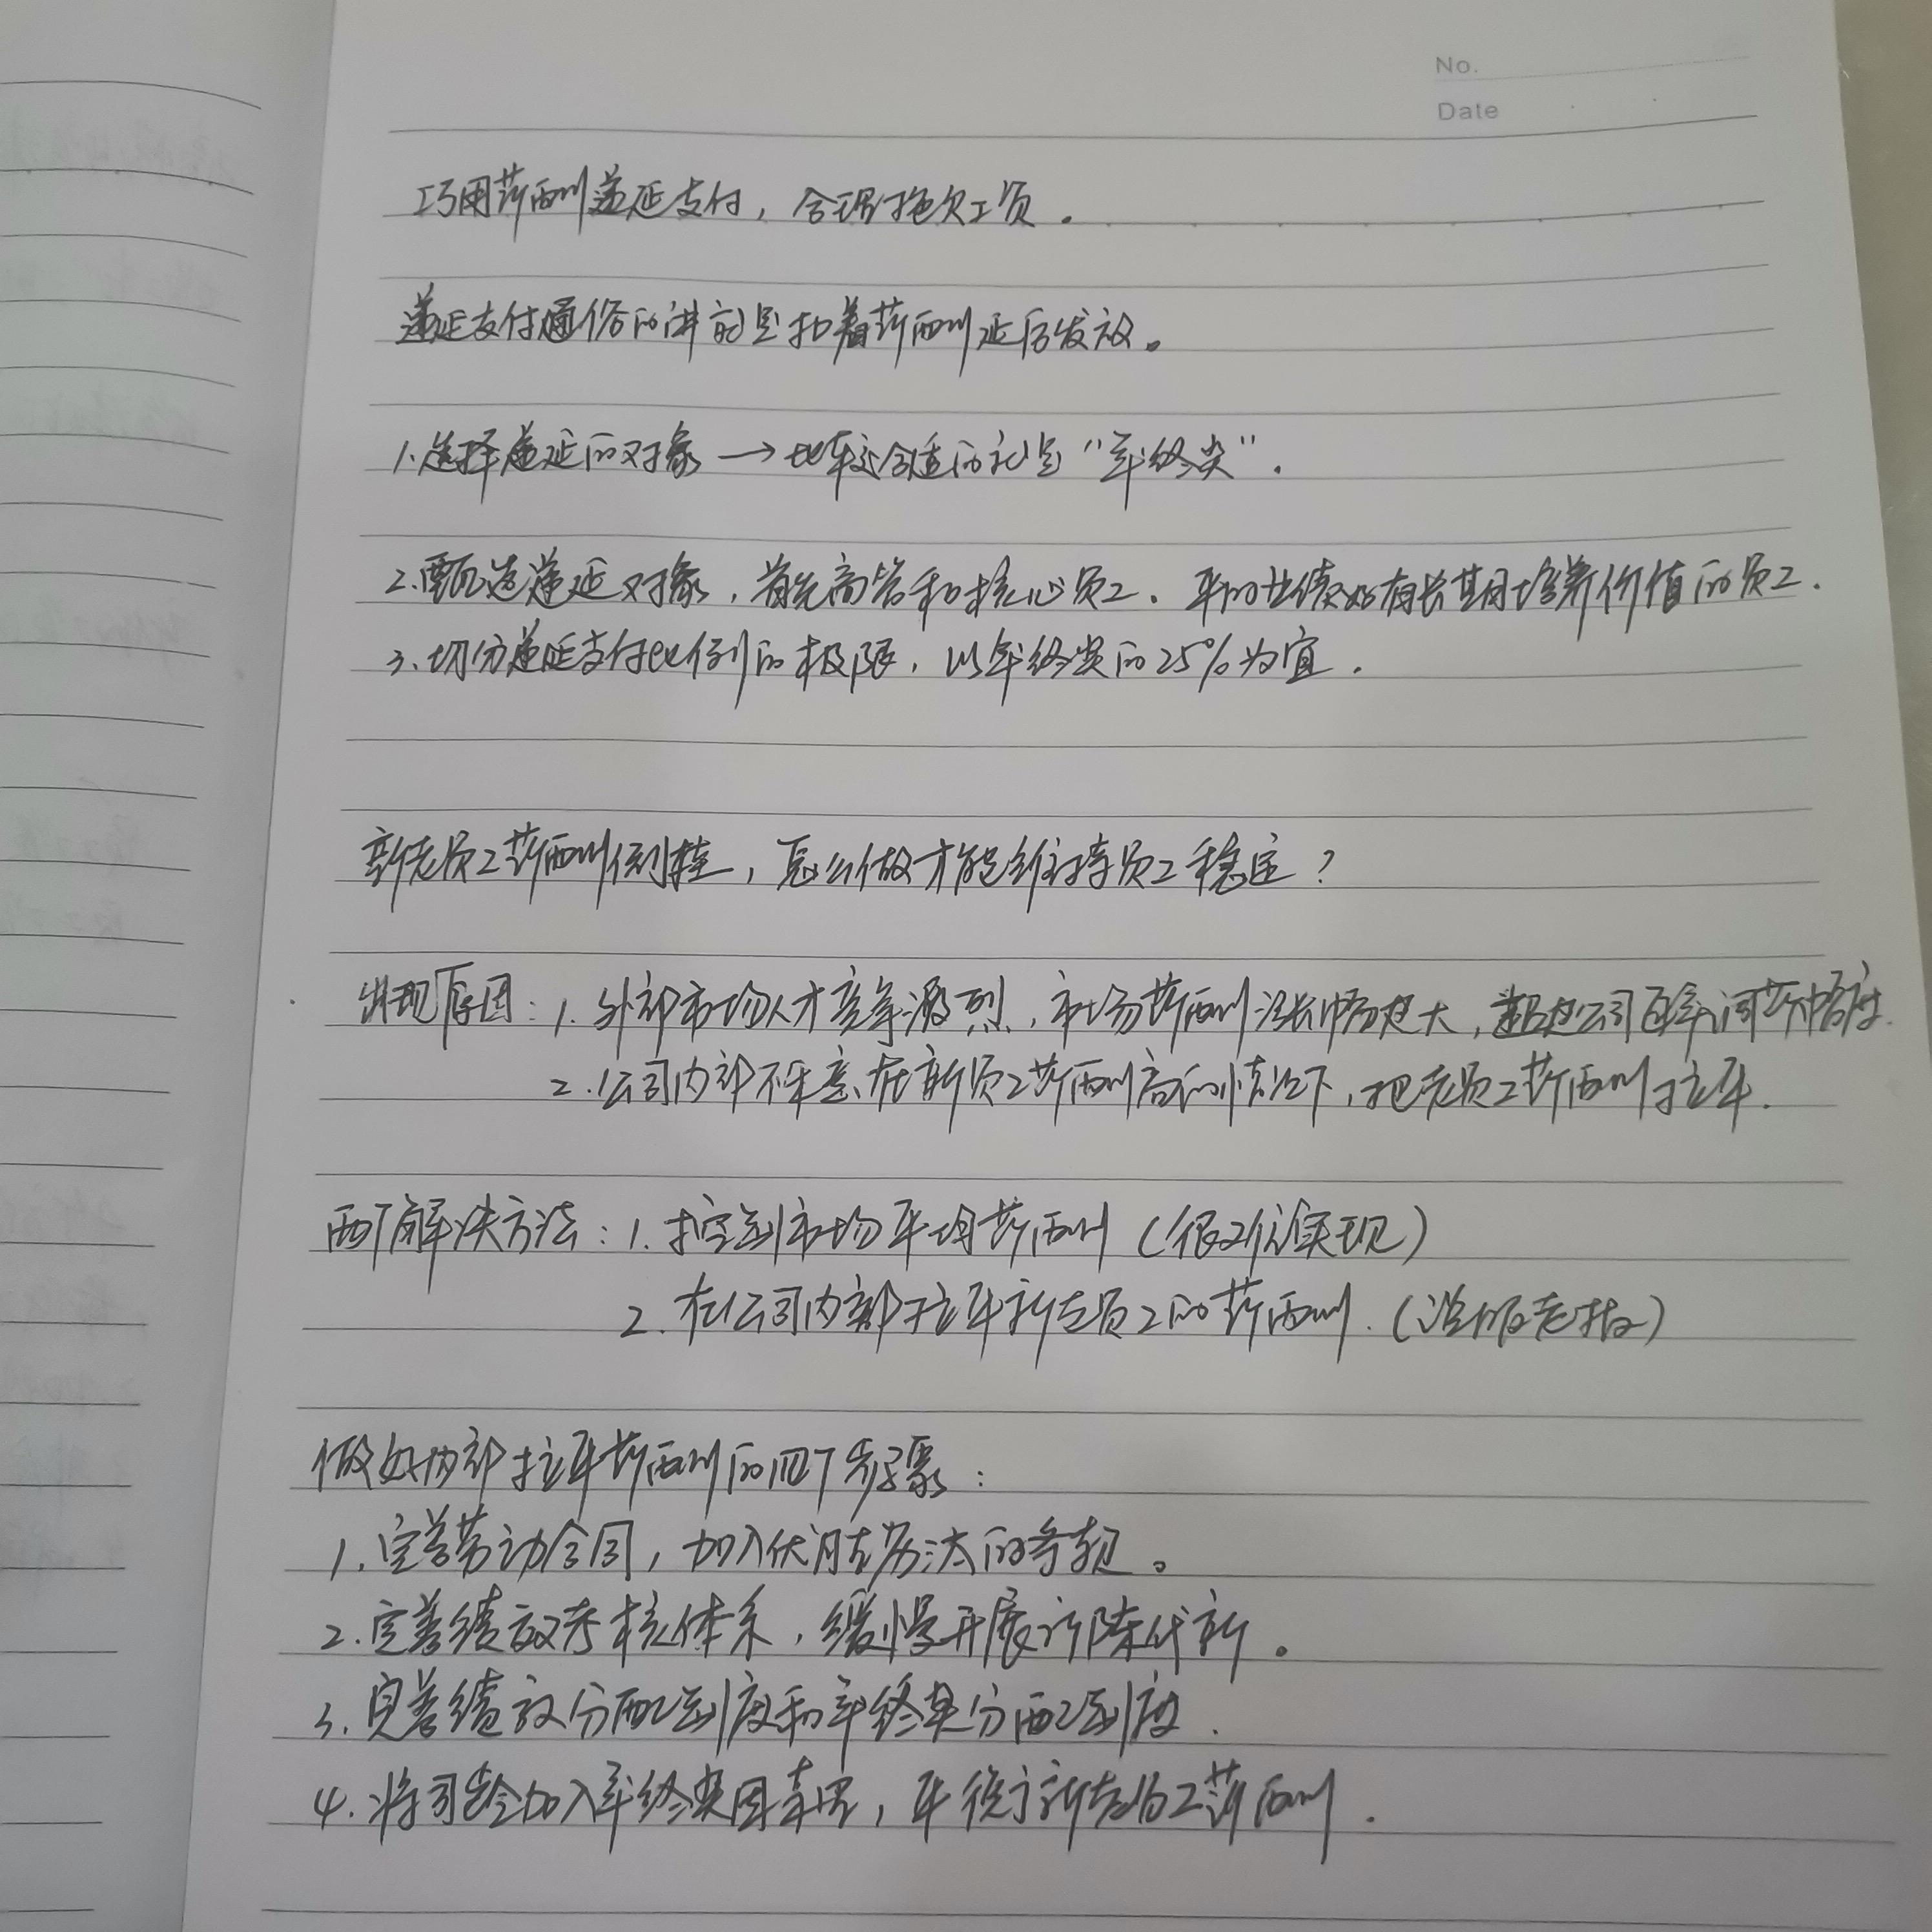 No.
Date
巧用薪酬递延支付，合理拖欠工资。
递延支付通俗的讲就是扣着薪酬延后发放。
1.选择递延的对象→比较合适的就是“年终奖”.
2.甄选递延对象，首先高管和核心员工. 平时业绩好有长期培养价值的员工.
3.切分递延支付比例的极限，以年终奖的25%为宜.
新老员工薪酬倒挂，怎么做才能维持员工稳定？
出现原因：1.外部市场人才竞争激烈，市场薪酬涨幅越大，超过公司每年调薪幅度.
2.公司内部不乐意在新员工薪酬高的情况下，把老员工薪酬拉平.
两个解决方法：1.控制市场平均薪酬（很难实现）
2.在公司内部拉平新老员工的薪酬.（说服老板）
做好内部拉平薪酬的四个步骤：
1.完善劳动合同，加入优胜劣汰的条款。
2.完善绩效考核体系，缓慢开展新陈代新。
3.完善绩效分配制度和年终奖分配制度.
4.将司龄加入年终奖因素里，平衡新老员工薪酬.